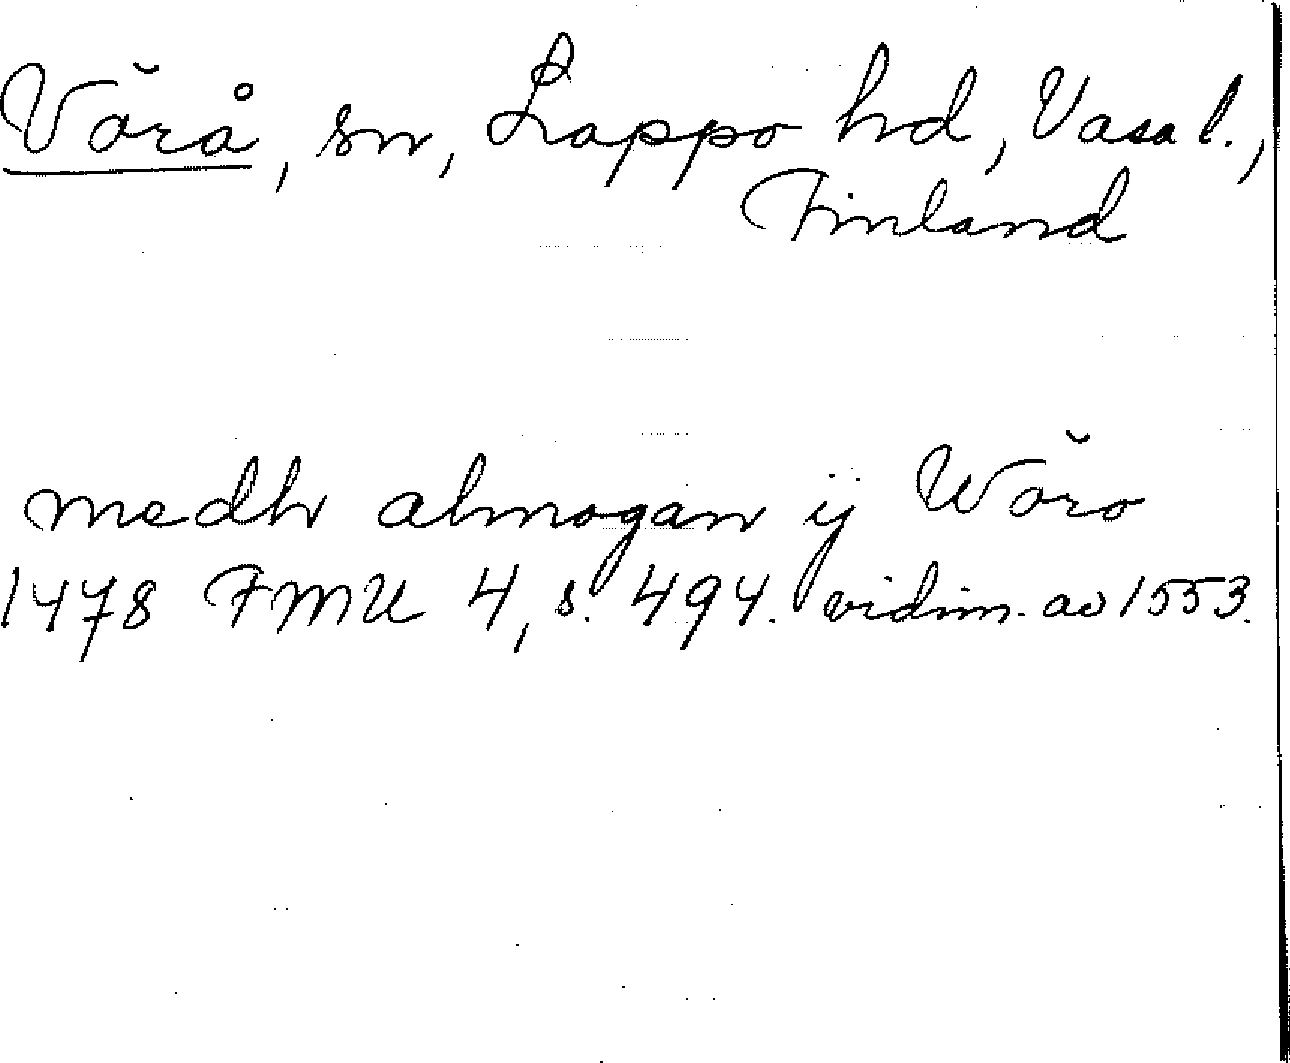 Vörå, sn, Lappo hd, Vasa l.,
Finland
medh almogan ij Wöro
1478 FMU 4, s. 494. vidim. av 1553.